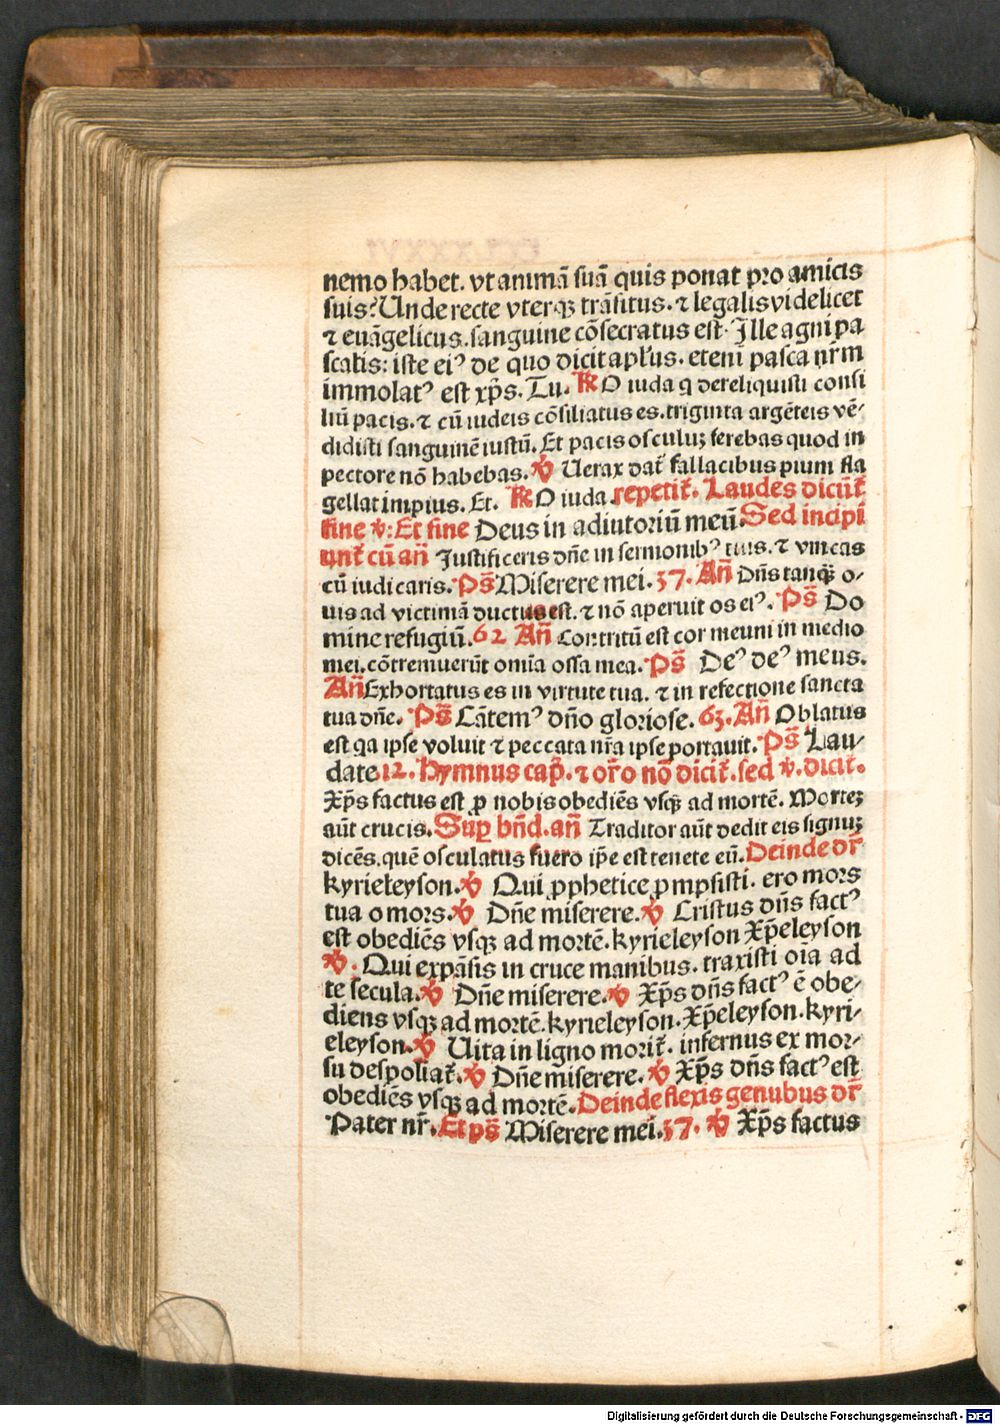 nemo habet. vt animā suā quis ponat pro amicis
suis? Unde recte vterqꝫ trāsitus. ⁊ legalis videlicet
⁊ euāgelicus. sanguine cōsecratus est. Ille agni pa
scalis: iste eiꝰ de quo dicit apl'us. etenī pasca nr̄m
immolatꝰ est xp̄s. Tu. R̄ O iuda q dereliquisti consi
liū pacis. ⁊ cū iudeis cōsiliatus es. triginta argēteis vē⸗
didisti sanguinē iustū. Et pacis osculuꝫ ferebas quod in
pectore nō habebas. ℣ Uerax dat̄ fallacibus pium fla
gellat impius. Et. R̄ O iuda. repetit̄. Laudes dicūt̄
sine ℣: Et sine Deus in adiutoriū meū. Sed incipi
unt̄ cū an̄ Justificeris dn̄e in sermonibꝰ tuis. ⁊ vincas
cū iudicaris. Ps̄ Miserere mei. 37. An̄ Dn̄s tanqꝫ o⸗
uis ad victimā ductus est. ⁊ nō aperuit os eiꝰ. Ps̄ Do
mine refugiū. 62 An̄ Contritū est cor meum in medio
mei. cōtremuerūt omīa ossa mea. Ps̄ Deꝰ deꝰ meus.
An̄ Exhortatus es in virtute tua. ⁊ in refectione sancta
tua dn̄e. Ps̄ Cātemꝰ dn̄o gloriose. 63. An̄ Oblatus
est qa ipse voluit ⁊ peccata nr̄a ipse portauit. Ps̄ Lau⸗
date 12. Hymnus cap̄. ⁊ or̄o nō dicit̄. sed ℣. dicit̄.
Xp̄s factus est ꝓ nobis obediēs vsqꝫ ad mortē. Morteꝫ
aūt crucis. Suꝑ bn̄d. an̄ Traditor aūt dedit eis signuꝫ
dicēs. quē osculatus fuero ip̄e est tenete eū. Deinde dr̄
kyrieleyson. ℣ Qui ꝓphetice ꝓmpsisti. ero mors
tua o mors. ℣ Dn̄e miserere. ℣ Cristus dn̄s factꝰ
est obediēs vsqꝫ ad mortē. kyrieleyson Xp̄eleyson
℣. Qui expāsis in cruce manibus. traxisti oīa ad
te secula. ℣ Dn̄e miserere. ℣ Xp̄s dn̄s factꝰ ē obe⸗
diens vsqꝫ ad mortē. kyrieleyson. Xp̄eleyson. kyri⸗
eleyson. ℣ Uita in ligno morit̄. infernus ex mor⸗
su despoliat̄. ℣ Dn̄e miserere. ℣ Xp̄s dn̄s factꝰ est
obediēs vsqꝫ ad mortē. Deinde flexis genubus dr̄
Pater nr̄. Et ps̄ Miserere mei. 37. ℣ Xp̄s factus
Digitalisierung gefördert durch die Deutsche Forschungsgemeinschaft - DFG